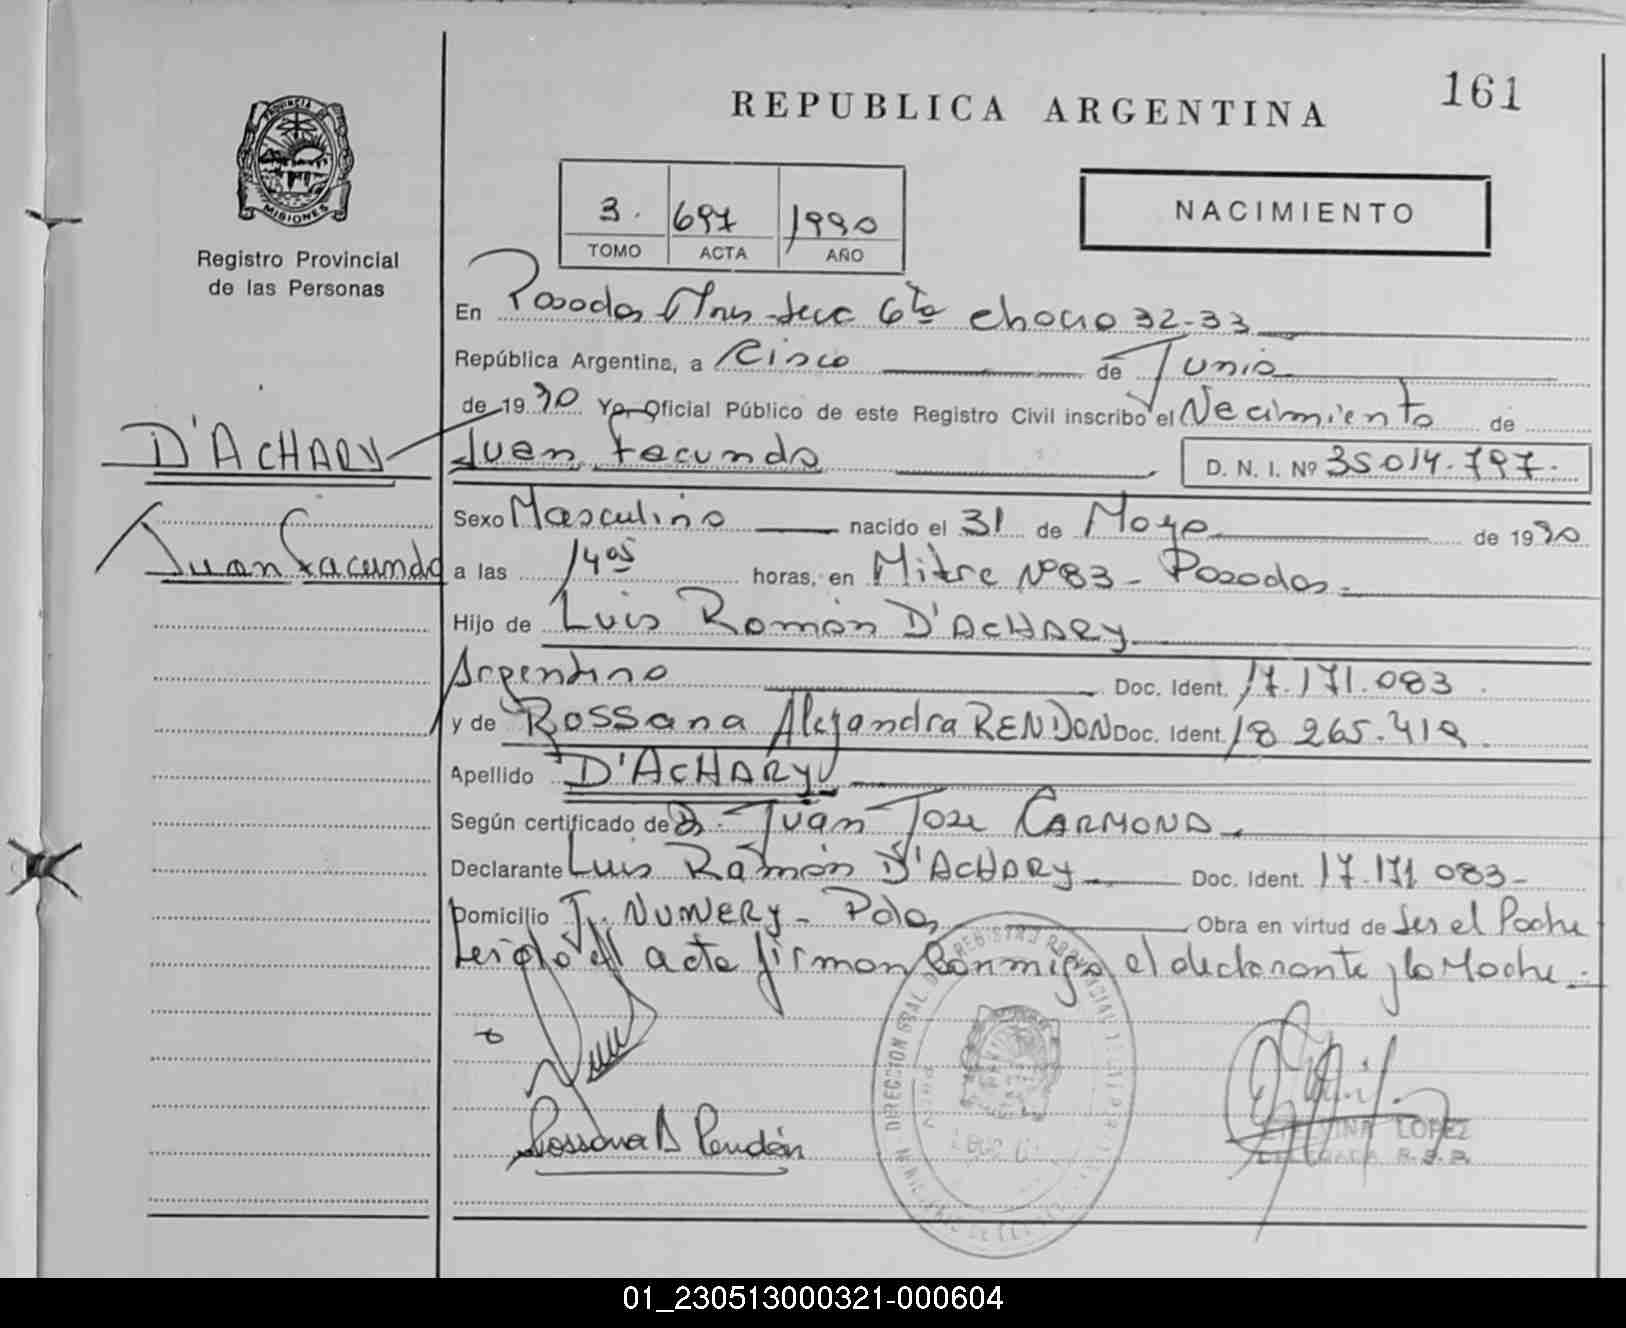 161
REPUBLICA ARGENTINA
PROVINCIA
MISIONES
Registro Provincial
de las Personas
3. 697 1990
TOMO ACTA AÑO
NACIMIENTO
En Posadas Mnes - Secc 6ta chacra 32-33
República Argentina, a Cinco de Junio
de 1990 Yo, Oficial Público de este Registro Civil inscribo el Nacimiento de
D'ACHARY
Juan Facundo D. N. I. Nº 35.014.797.
Juan Facundo
Sexo Masculino nacido el 31 de Mayo de 1990
a las 14 05 horas, en Mitre Nº 83 - Posadas.
Hijo de Luis Ramón D'ACHARY
Argentino Doc. Ident. 17.171.083
y de Rossana Alejandra RENDON Doc. Ident. 18.265.419.
Apellido D'ACHARY
Según certificado de Juan Jose CARMONA.
Declarante Luis Ramón D'ACHARY Doc. Ident. 17.171.083-
Domicilio Pdas, Obra en virtud de Ser el Padre
Leida el acta firman conmigo el declarante y la Madre.
Rossana A Rendón
LOPEZ
01_230513000321-000604